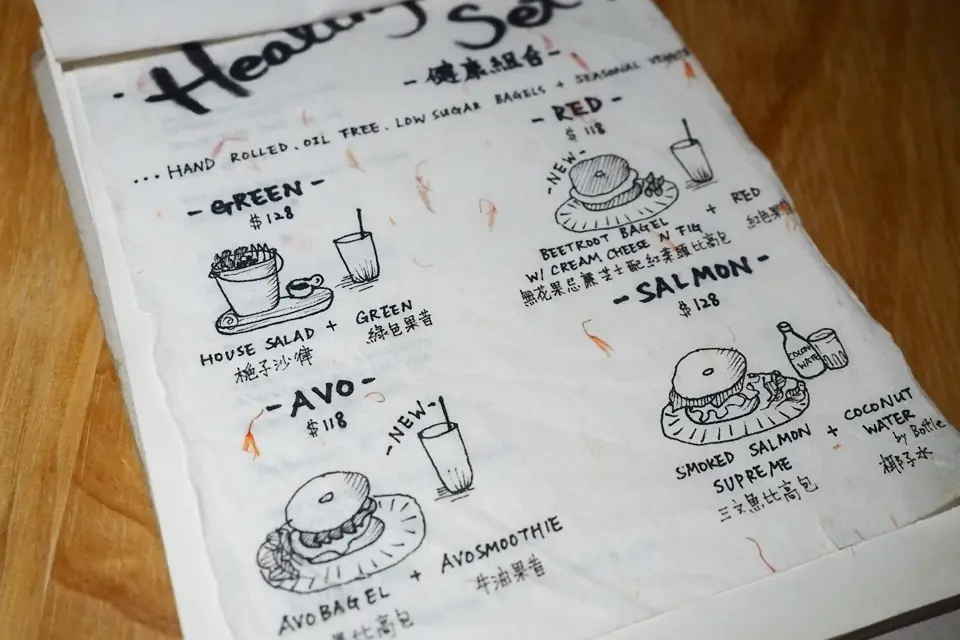 Healthy Set
- 健康組合 -
... HAND ROLLED . OIL FREE . LOW SUGAR BAGELS + SEASONAL
- GREEN -
$128
HOUSE SALAD + GREEN
梔子沙律 綠色果昔
- RED -
$118
- NEW -
BEETROOT BAGEL + RED
W/ CREAM CHEESE N FIG 紅色果
無花果忌廉芝士配紅菜頭比高包
- AVO -
$118
- NEW -
AVOBAGEL + AVOSMOOTHIE
果比高包 牛油果昔
- SALMON -
$128
COCONUT
WATER
SMOKED SALMON
SUPREME
三文魚比高包
+ COCONUT
WATER
by Bottle
椰子水